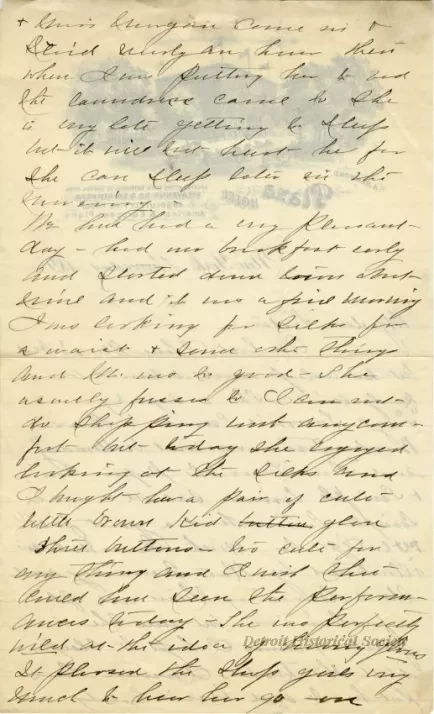 & Miss Morgan came in &
staid nearly an hour then
when I was putting her to bed
the laundress came so she
is very late getting to sleep
but it will not hurt her for
she can sleep later in the
morning.
We have had a very pleasant
day - had our breakfast early
and started down town about
nine and it was a fine morning
I was looking for silks for
a waist & some other things
and she was so good - She
usually fusses so I can not
do shopping with any com-
fort but today she enjoyed
looking at the silks and
I bought her a pair of cute
little brown kid button glove
three buttons - too cute for
any thing and I wish you
could have seen the perform-
ances today - She was perfectly
wild at the idea of having gloves
It pleased the shop girls very
much to hear her go on
Plaza
Hotel
Detroit Historical Society